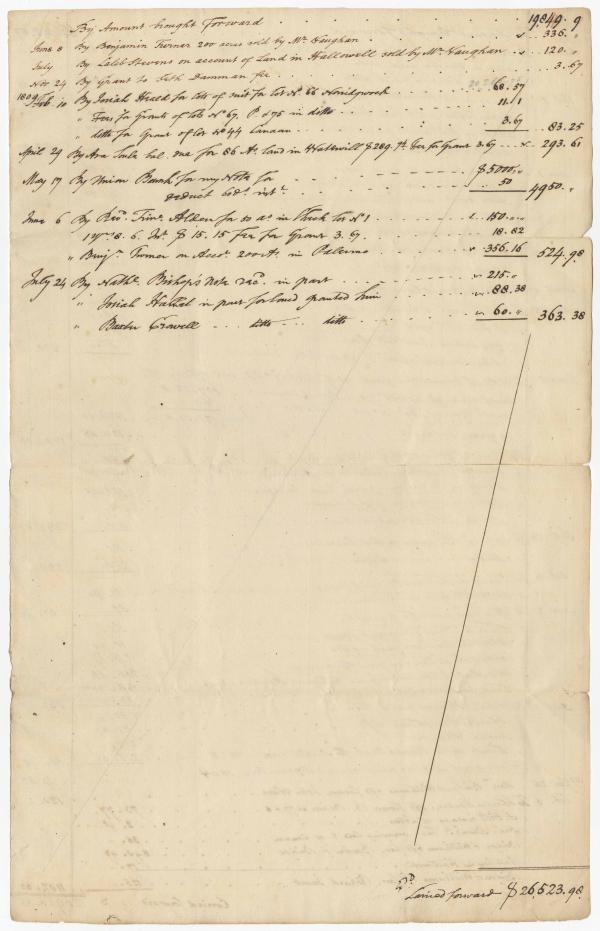 By Amount brought Forward . . . . 19849. 9
June 8 By Benjamin Turner 200 acres sold by Mr. Vaughan . . 336. "
July By Caleb Stevens on account of Land in Hallowell sold by Mr. Vaughan . . 120. "
Nov 24 By Grant to Seth Damman fee . . . 3.67
1809 Feb. 10 By Josiah Heald for lots of for lot No. 66 Norridgwock . . 68.57
" Fees for Grants of lots No. 67. & 75 in ditto . . 11. 1
" ditto for Grant of lot No 44 Canaan . . 3.67 83.25
April 29 By Asa bal. due for 86 As. land in $289. Fee for Grant 3.67 . . 293.61
May 17 By Union Bank for my Note for $5000. "
deduct 60ds. intt. . . 50 4950. "
June 6 By Alden for 50 as. in lot No 1 . . . 150. "
8. 6. Int. $15.15 Fee for Grant 3.67 . . 18.82
" Benjn. Turner on Acct. 200 As. in Palermo . . 356.16 524.98
July 24 By Nathl. Bishop's Note recd. in part . . . 215. "
" Josiah in part for land granted him . . 88.38
" Baxter Crowell . . . ditto . . . ditto . . 60. " 363.38
Carried forward $26,523.98